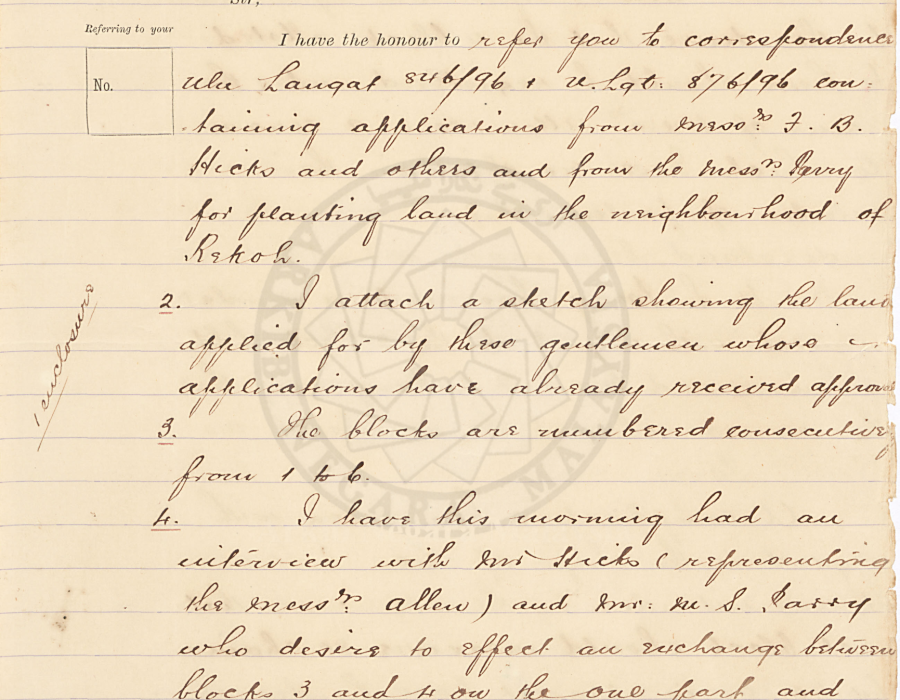 Sir,
Referring to your
No.
I have the honour to refer you to correspondence
Ulu Langat 846/96 & U. Lgt: 876/96 con-
taining applications from Messrs: F. B.
Hicks and others and from the Messrs: Parry
for planting land in the neighbourhood of
Rekoh.
2. I attach a sketch showing the land
applied for by these gentlemen whose
applications have already received approval
1 enclosure
3. The blocks are numbered consecutively
from 1 to 6.
4. I have this morning had an
interview with Mr Hicks (representing
the Messrs: Allen) and Mr: M. S. Parry
who desire to effect an exchange between
blocks 3 and 4 on the one part and